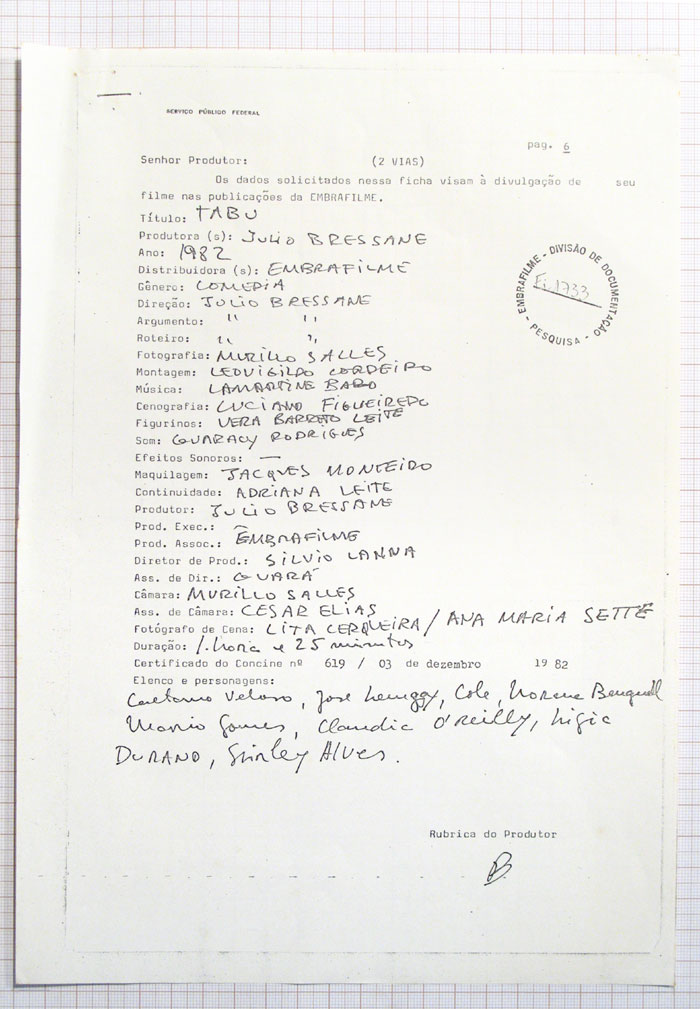 SERVIÇO PÚBLICO FEDERAL
pag. 6
Senhor Produtor: (2 VIAS)
Os dados solicitados nessa ficha visam à divulgação de seu
filme nas publicações da EMBRAFILME.
Título: TABU
Produtora (s): JULIO BRESSANE
Ano: 1982
Distribuidora (s): EMBRAFILME
Gênero: COMEDIA
Direção: JULIO BRESSANE
Argumento: " "
Roteiro: " "
Fotografia: MURILLO SALLES
Montagem: LEOVIGILDO CORDEIRO
Música: LAMARTINE BABO
Cenografia: LUCIANO FIGUEIREDO
Figurinos: VERA BARRETO LEITE
Som: GUARACY RODRIGUES
Efeitos Sonoros: —
Maquilagem: JACQUES MONTEIRO
Continuidade: ADRIANA LEITE
Produtor: JULIO BRESSANE
Prod. Exec.: —
Prod. Assoc.: EMBRAFILME
Diretor de Prod.: SILVIO LANNA
Ass. de Dir.: GUARÁ
Câmara: MURILLO SALLES
Ass. de Câmara: CESAR ELIAS
Fotógrafo de Cena: LITA CERQUEIRA / ANA MARIA SETTE
Duração: 1. hora e 25 minutos
Certificado do Concine nº 619 / 03 de dezembro 1982
Elenco e personagens:
Caetano Veloso, José Lewgoy, Cole, Norma Benguell
Mario Gomes, Claudia O'Reilly, Ligia
DURANO, Shirley Alves.
Rubrica do Produtor
EMBRAFILME - DIVISÃO DE DOCUMENTAÇÃO - PESQUISA -
Fi 1733